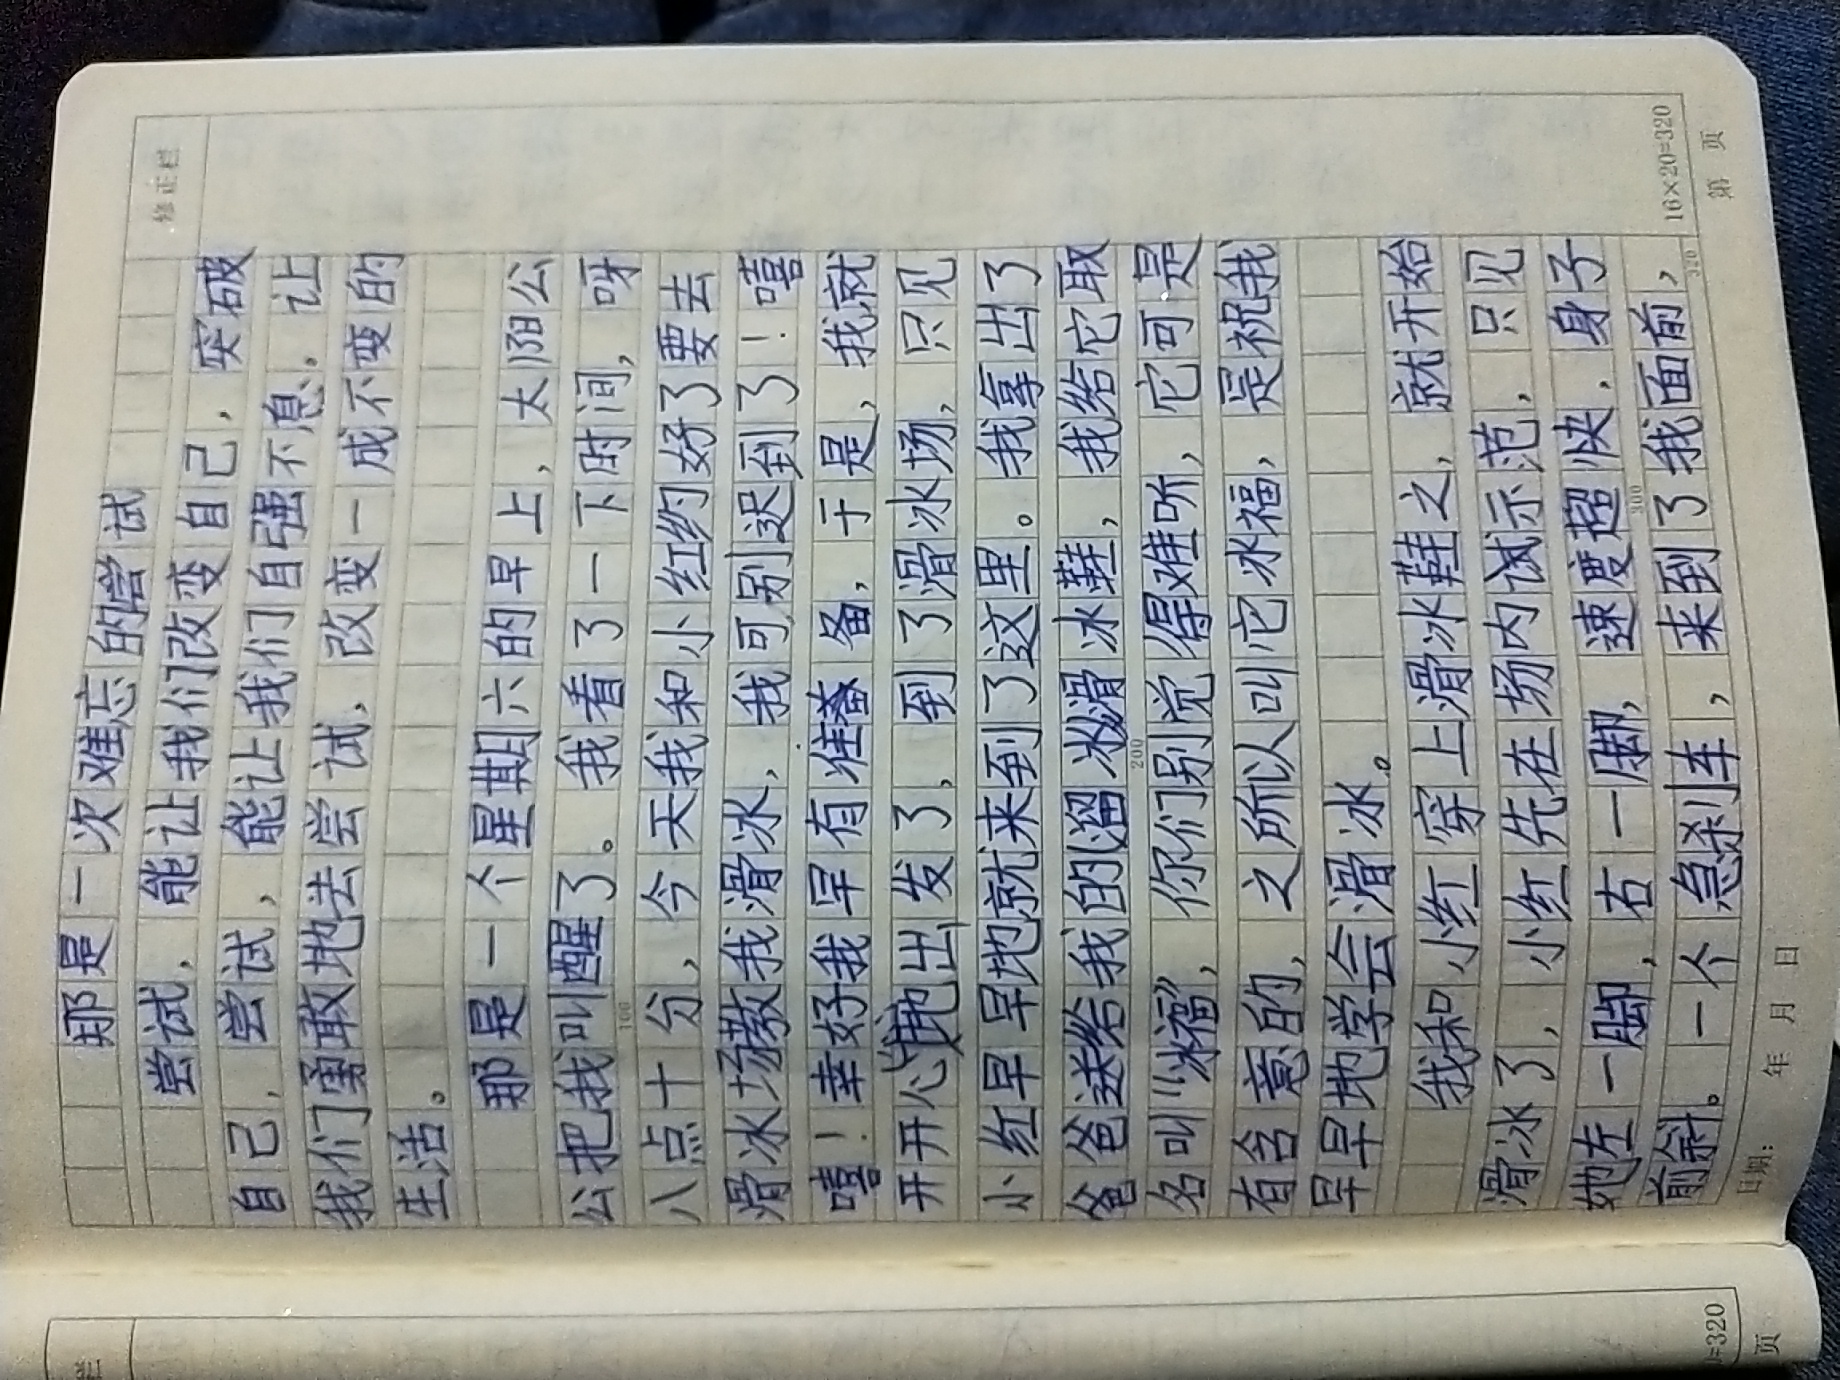 修正栏
那是一次难忘的尝试
尝试，能让我们改变自己，突破
自己，尝试，能让我们自强不息。让
我们勇敢地去尝试，改变一成不变的
生活。
那是一个星期六的早上，太阳公
公把我叫醒了。我看了一下时间，呀
八点十分，今天我和小红约好了要去
滑冰场教我滑冰，我可别迟到了！嘻
嘻！幸好我早有准备，于是，我就
开开心心地出发了，到了滑冰场，只见
小红早早地就来到了这里。我拿出了
爸爸送给我的溜冰滑冰鞋，我给它取
名叫“冰福”，你们别觉得难听，它可是
有含意的，之所以叫它冰福，是祝我
早早地学会滑冰。
我和小红穿上滑冰鞋之，就开始
滑冰了，小红先在场内试示范，只见
她左一脚，右一脚，速度超快，身子
前斜。一个急刹车，来到了我面前，
100
200
300
320
16×20=320
日期： 年 月 日
第 页
栏
=320
页